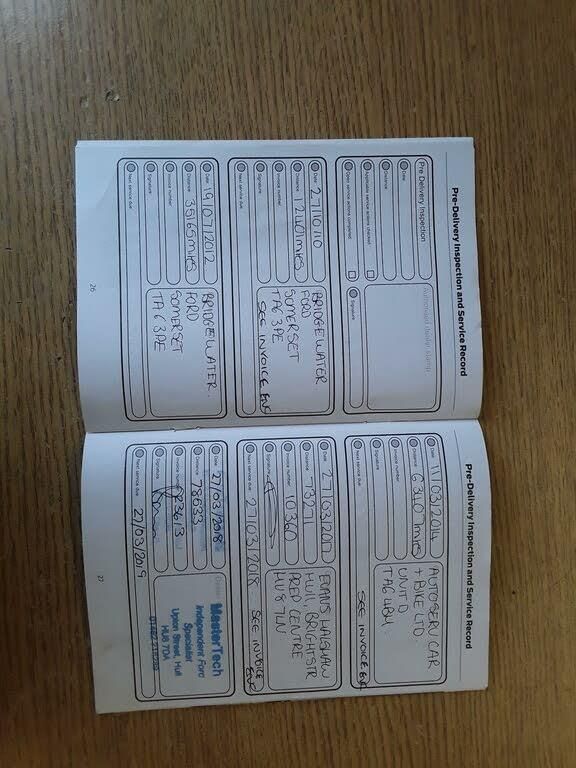 Pre-Delivery Inspection and Service Record
Pre Delivery Inspection
Date
Distance
Applicable service actions checked
Open service actions completed
Authorised dealer stamp
Signature
Date 27/10/10
Distance 12401 miles
Invoice number
Signature
Next service due
BRIDGEWATER
FORD
SOMERSET
TA6 3PE
SEE INVOICE
Date 19/07/2012
Distance 35160 miles
Invoice number
Signature
Next service due
BRIDGEWATER.
FORD
SOMERSET
TA6 3PE
26
Pre-Delivery Inspection and Service Record
Date 11/03/2014
Distance 63407 miles
Invoice number
Signature
Next service due
AUTOSERV CAR
+ BIKE LTD.
UNIT D
TA6 4BH
SEE INVOICE
Date 27/03/2017
Distance
Invoice number 10360
Signature
Next service due 27/03/2018
EVANS HALSHAW
HULL, BRIGHT STR
PREP CENTRE
HU8 7LN
SEE INVOICE
Date 27/03/2018
Distance 78633
Invoice number
Signature
Next service due 27/03/2019
MasterTech
Independent Ford
Specialist
Upton Street, Hull
HU8 7DA
27